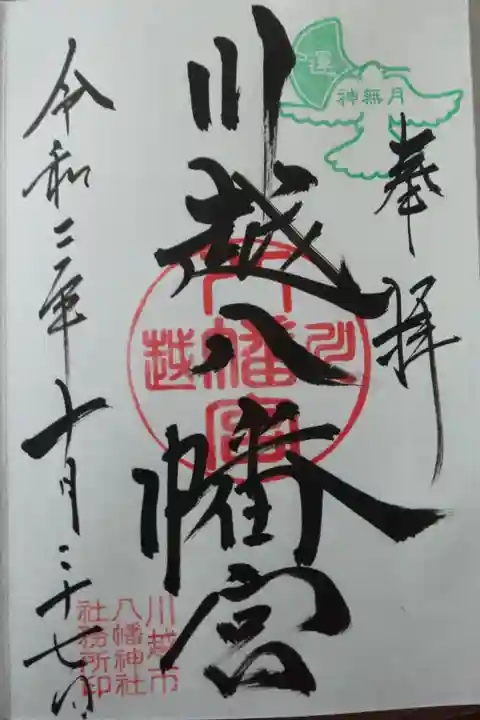 奉拝
運
月無神
川越八幡宮
川越八幡宮
令和二年十月二十七日
川越市
八幡神社
社務所印